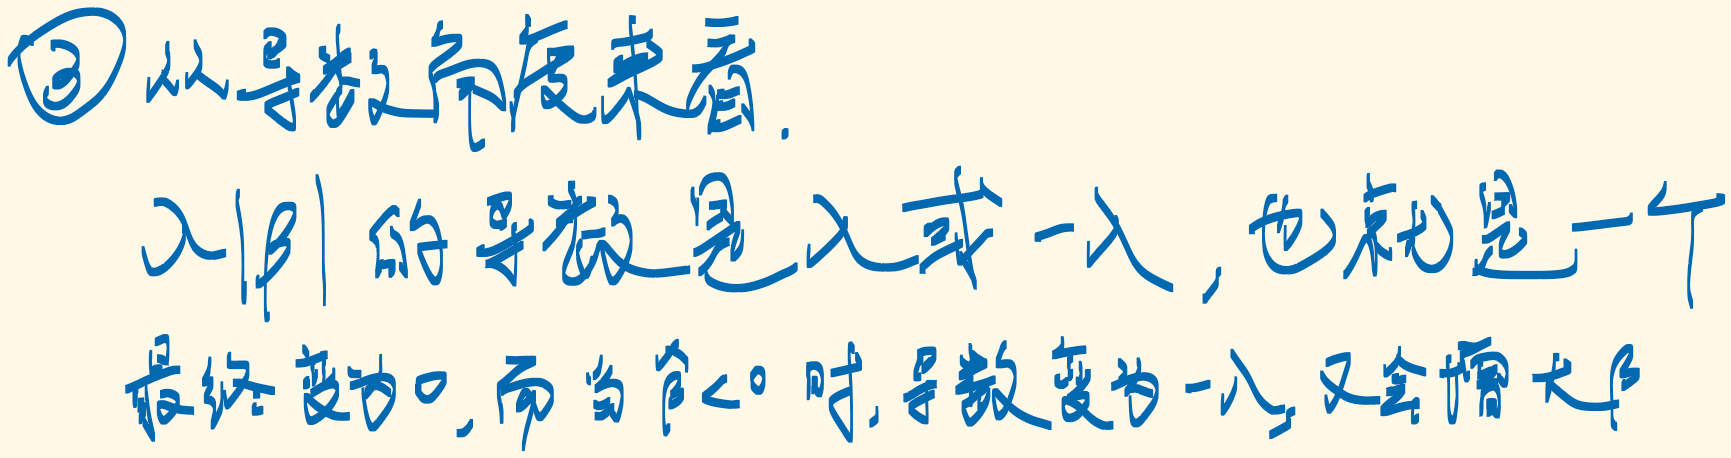 ③从导数角度来看.
λ|β|的导数是λ或-λ,也就是一个
最终变为0,而当β<0时,导数变为-λ,又会增大β